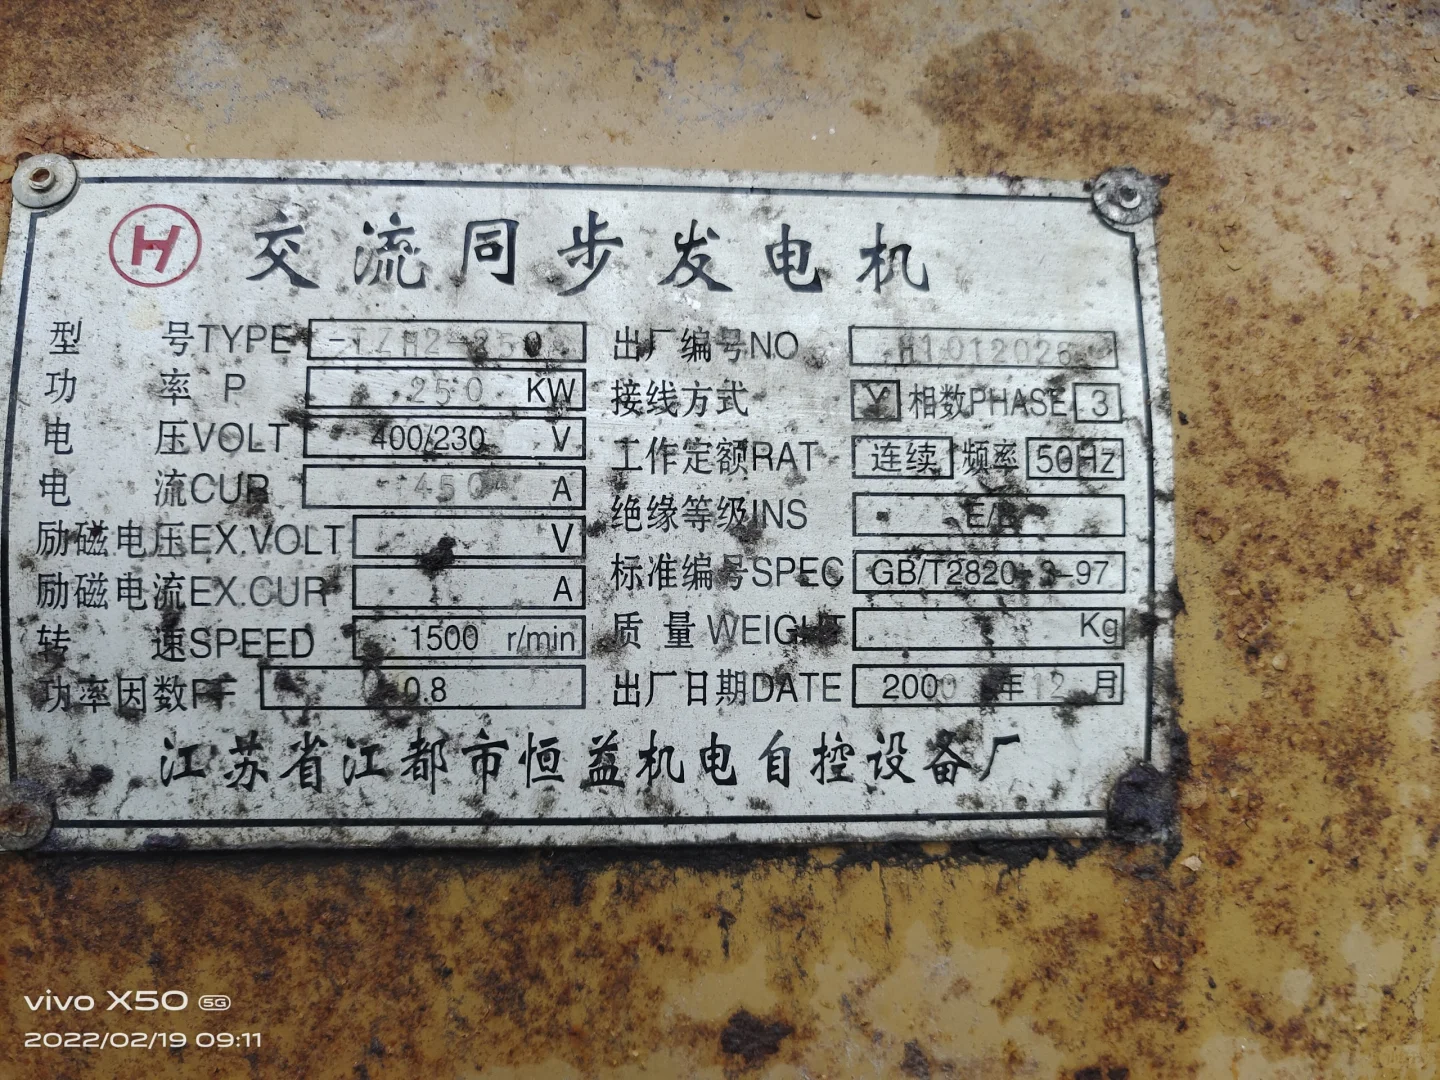 H 交流同步发电机
型号TYPE -TZH2-250 出厂编号NO H1012026
功率 P 250 KW 接线方式 Y 相数PHASE 3
电压VOLT 400/230 V 工作定额RAT 连续 频率 50Hz
电流CUR 450 A 绝缘等级INS
励磁电压EX.VOLT V 标准编号SPEC GB/T2820.3-97
励磁电流EX.CUR A 质量WEIGHT Kg
转速SPEED 1500 r/min 出厂日期DATE 2000年12月
功率因数PF 0.8
江苏省江都市恒益机电自控设备厂
vivo X50 5G
2022/02/19 09:11